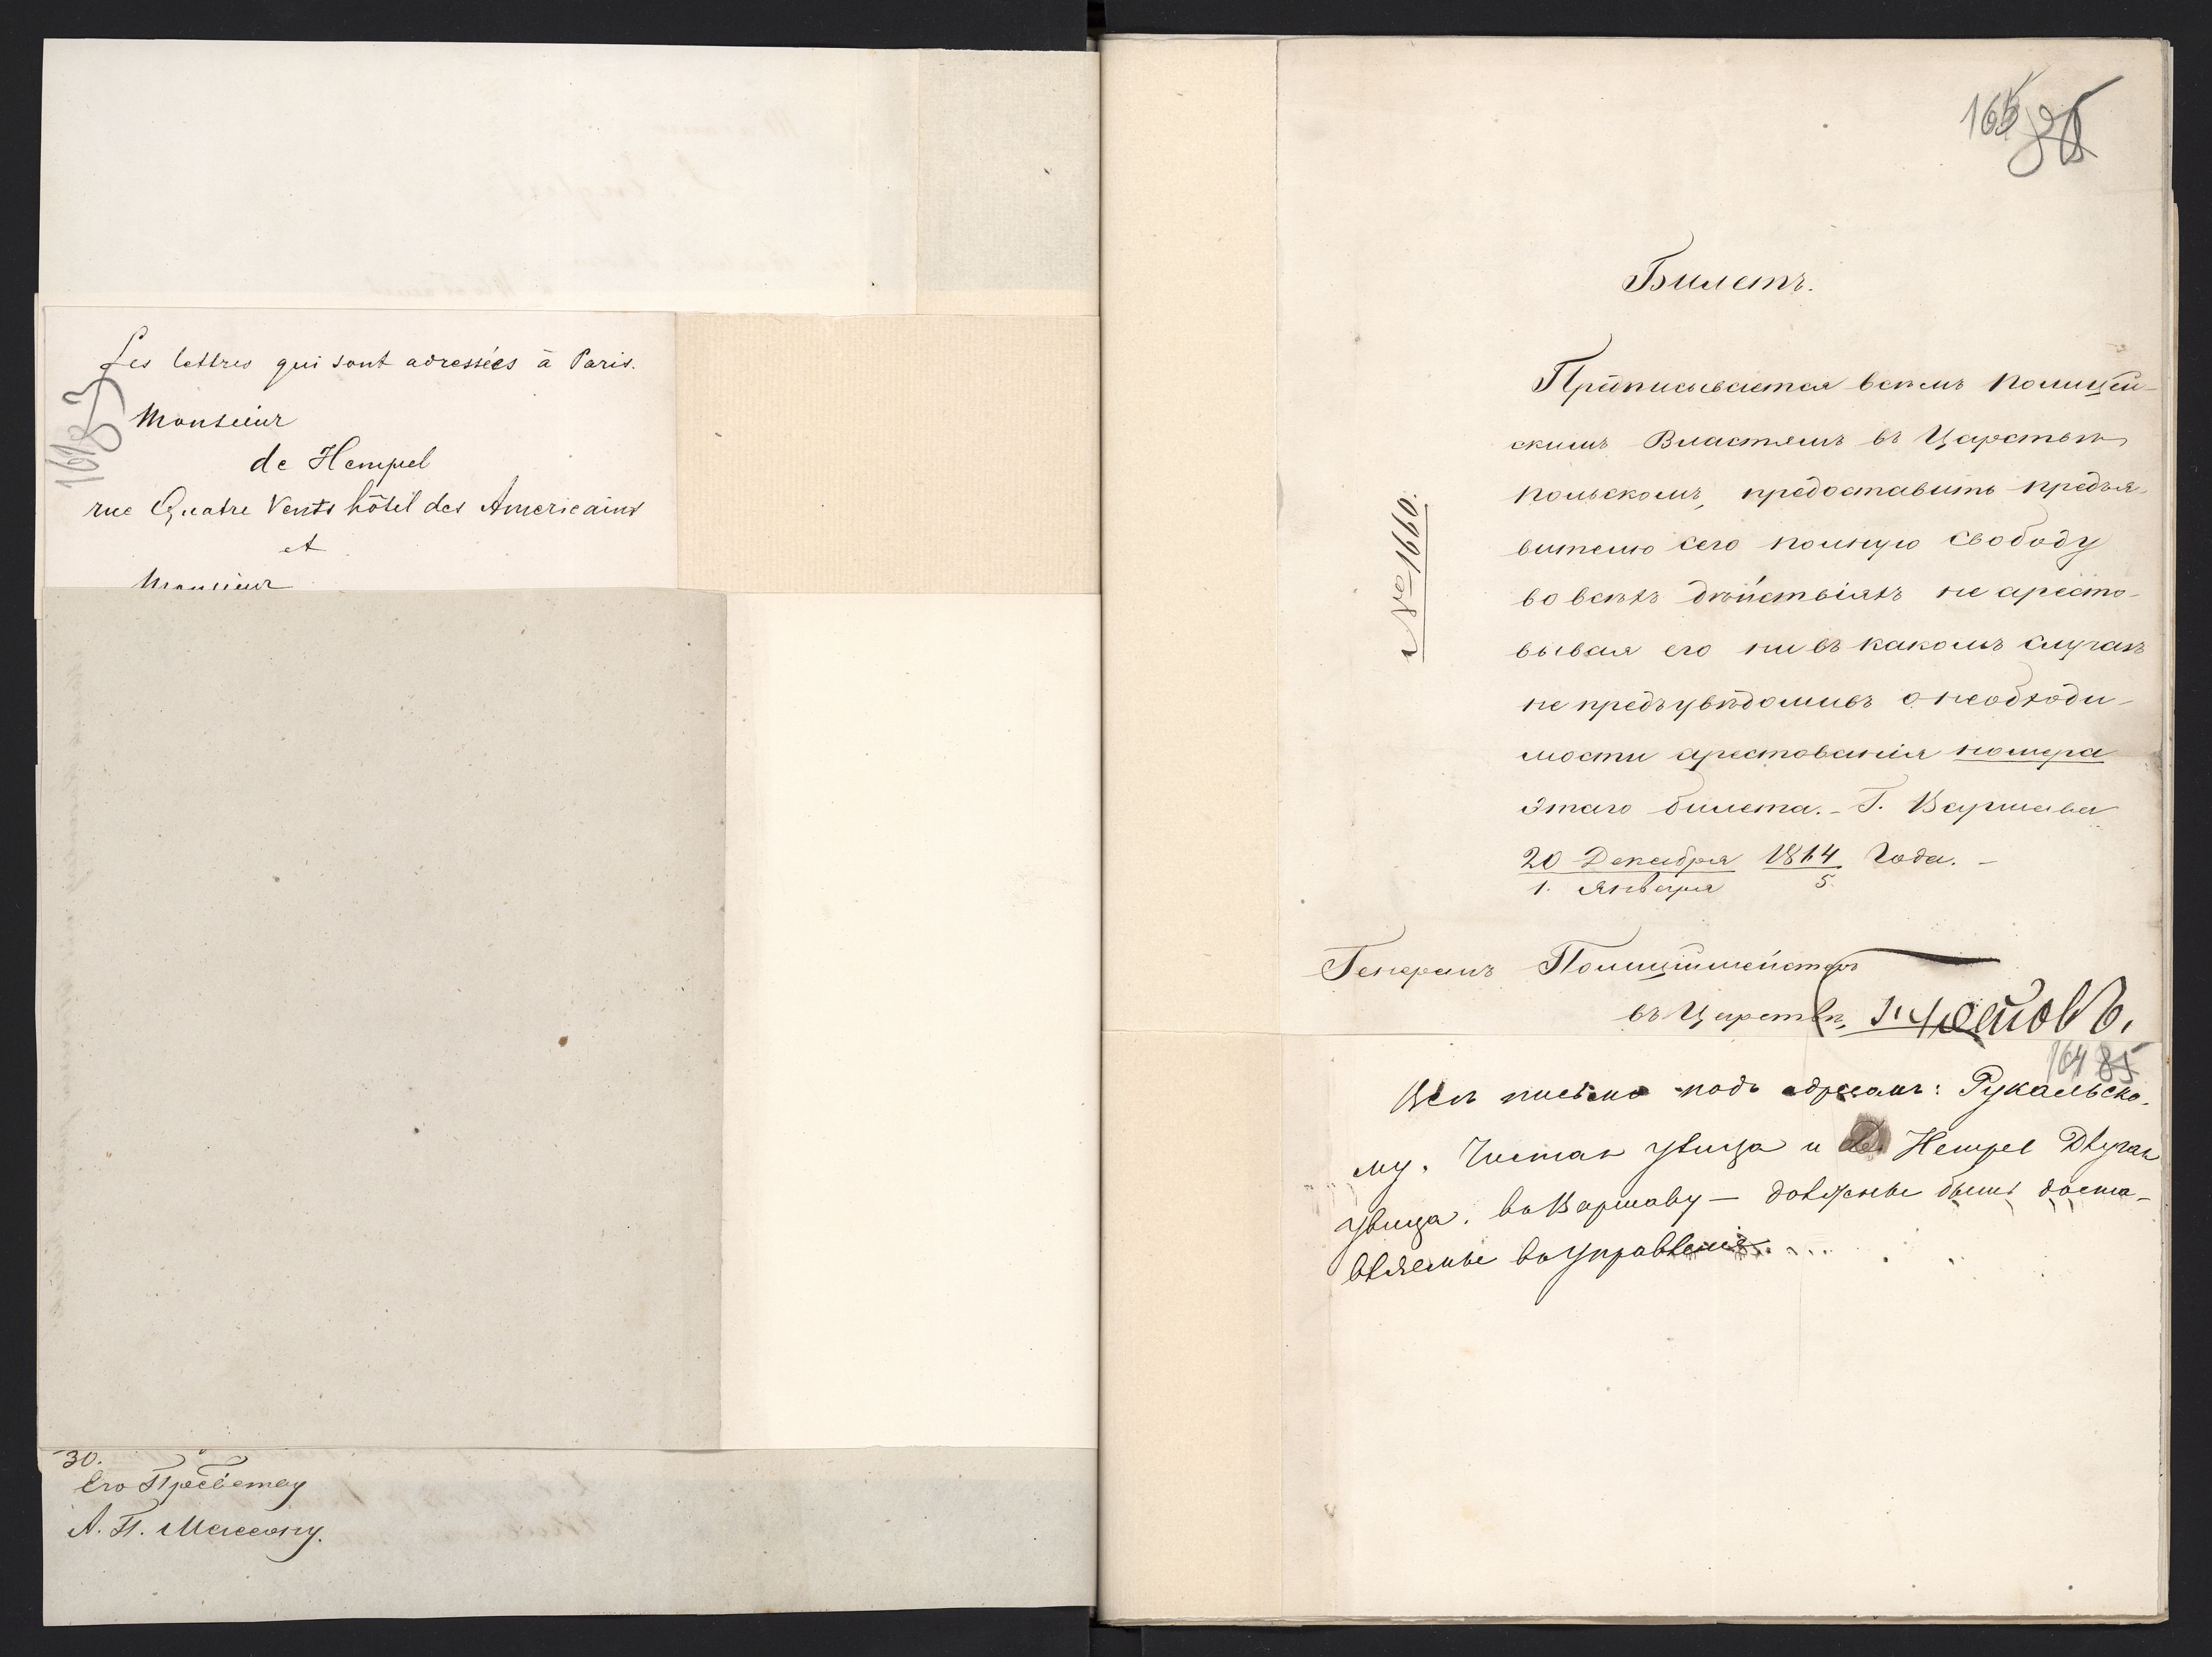 Les lettres qui sont adressées à Paris.
Monsieur
de Hempel
rue Quatre Vents hôtel des Americains
et
Monsieur
30.
Его Прев̃ству
А. П.
165
Билетъ.
Предписывается всѣмъ Полицей-
скимъ Властямъ въ Царствѣ
Польскомъ, предоставить предъя-
вителю сего полную свободу
во всѣхъ дѣйствіяхъ не аресто-
вывая его ни въ какомъ случаѣ
не предъувѣдомивъ о необходи-
мости арестованія номера
этаго билета. – Г. Варшава
20 Декабря 1864 года. –
1. Января 5
№ 1660.
Генералъ Полиціймейстеръ
въ Царствѣ,
164 85
Всѣ письма подъ адресамъ: Рукальско-
му. Чистая улица и de Hempel Двугая
улица. въ Варшаву — должны быть доста-
вляемы въ Управленія